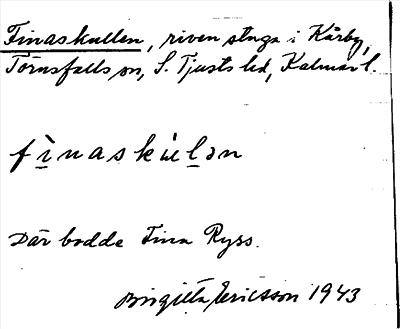 Finaskullen, riven stuga i Kårby,
Törnsfalls sn, S. Tjusts hd, Kalmar l.
fìnaskùlən
Där bodde Fina Ryss.
Birgitta Ericsson 1943